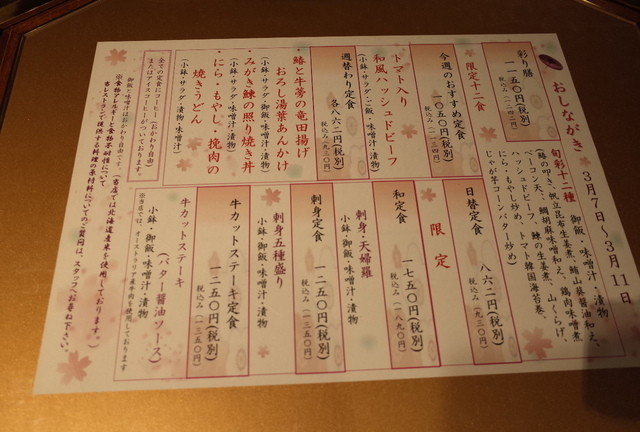 おしながき
3月7日～3月11日
彩り膳
一一五〇円(税別)
税込み(一二四二円)
旬彩十二種
御飯・味噌汁・漬物
(鰆の叩き、帆立昆布生姜煮、鮪山葵醤油和え、
ベーコン天、鯛胡麻味噌和え、鶏肉味噌煮
ハッシュドビーフ、鰊の生姜煮、山くらげ、
にら・もやし炒め、トマト韓国海苔巻、
じゃが芋コーンバター炒め)
限定十二食
今週のおすすめ定食
一〇五〇円(税別)
税込み(一一三四円)
トマト入り
和風ハッシュドビーフ
(小鉢・サラダ・ご飯・味噌汁・漬物)
週替わり定食
各八六二円(税別)
税込み(九三〇円)
・鰆と牛蒡の竜田揚げ
おろし湯葉あんかけ
(小鉢・サラダ・御飯・味噌汁・漬物)
・みがき鰊の照り焼き丼
(小鉢・サラダ・味噌汁・漬物)
・にら・もやし・挽肉の
焼きうどん
(小鉢・サラダ・漬物・味噌汁)
日替定食
八六二円(税別)
税込み(九三〇円)
限定
和定食
一七五〇円(税別)
税込み(一八九〇円)
刺身・天婦羅
小鉢・御飯・味噌汁・漬物
刺身定食
一二五〇円(税別)
税込み(一三五〇円)
刺身五種盛り
小鉢・御飯・味噌汁・漬物
牛カットステーキ定食
一二五〇円(税別)
税込み(一三五〇円)
牛カットステーキ
(バター醤油ソース)
小鉢・御飯・味噌汁・漬物
※当店では、オーストラリア産牛肉を使用しております
全ての定食にコーヒー(おかわり自由)
またはアイスコーヒーがついております。
御飯と味噌汁はおかわり自由です。(当店では北海道産米を使用しております。)
※食物アレルギーと食物不耐性について
当レストランで提供する料理の原材料についてのご質問は、スタッフへお尋ね下さい。